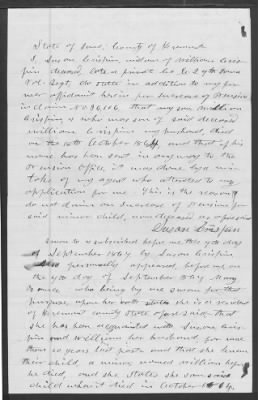 State of Iowa, County of Fremont
I, Susan Crispin, widow of William Cris-
pin deceased, late a private in Co. E 29th Iowa
Vol. Regt. do state in addition to my for-
mer affidavit herein for Increase of Pension
in Claim No 96,106, that my son William
Crispin, who was son of said deceased
William Crispin my husband, died
on the 15th October 1864 and that if his
name has been sent in anyway to the
Pension Office, it was done by a mis-
take of my agent who attended to my
application for me. This is the reason I
do not claim an Increase of Pension for
said minor child, now deceased as aforesaid
Susan Crispin
Sworn to & subscribed before me this 9th day
of September 1867 by Susan Crispin
personally appeared before me on
the 9th day of September 1867 Mary
who being by me sworn for that
purpose upon her oath states she is a resident
of Fremont county state aforesaid that
she has been acquainted with Susan Cris-
pin and William her husband, for more
than 10 years last past and that she knew
their child a minor named William before
he died, and she states she saw said
child when it died in October 1864.